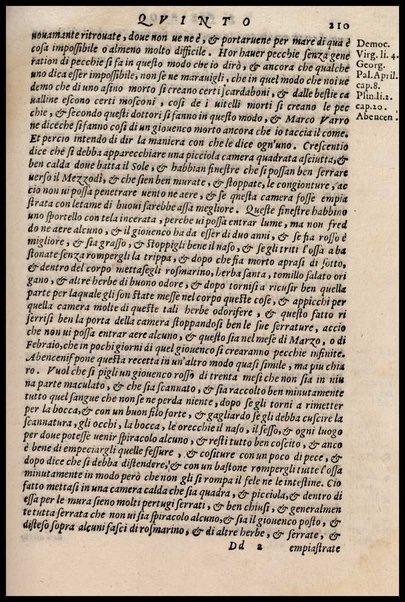 QVINTO 210
nouamante ritrouate, doue non ue ne è, & portaruene per mare di qua è
cosa impossibile o almeno molto difficile. Hor hauer pecchie senza gene
ration di pecchie si fa in questo modo che io dirò, & ancora che qualche
uno dica esser impossibile, non se ne marauigli, che in quel modo che noi ue
demo che di uno asino morto si creano certi scardaboni, & dalle bestie ca
ualline escono certi mosconi, cosi de i uitelli morti si creano le pec
chie, & secondo questi dottori si fanno in questo modo, & Marco Varro
ne dice che si fanno cosi di un giouenco morto ancora che io taccia il come.
Et percio intendo di dir la maniera con che le dice ogn'uno. Crescentio
dice che si debba apparecchiare una picciola camera quadrata asciutta, &
ben calda doue batta il Sole, & habbian finestre che si possan ben serrare
uerso il Mezzodì, & che sien ben murate, & stoppate, le congionture, ac
cio non ui possa penetrare uento ne aere, & se questa camera fosse empia
strata con letame di buoui sarebbe assa megliore. Queste finestre habbino
uno sportello con tela incerata, perche ui possa entrar lume, ma non fred
do ne aere alcuno, & il giouenco ha da esser di duo anni, & se fia rosso è
migliore, & sia grasso, & stoppigli bene il naso, & segli tritti l'ossa a ba
stonate senza rompergli la trippa, & dopo che fia morto aprasi di sotto,
& dentro del corpo mettasegli rosmarino, herba santa, tomillo salato ori
gano, & altre herbe di buono odore, & dopo tornisi a ricusir ben quella
parte per laquale gli son state messe nel corpo queste cose, & appicchi per
quella camera molte di queste tali herbe odorifere, & questo fatto ri
serrisi ben la porta della camera stoppandosi ben le sue serrature, accio
che non ui possa entrar aere alcuno, & questo sia nel mese di Marzo, o di
Febraio, che in pochi giorni di quel giouenco si crearanno pecchie infinite.
Abencenif pone questa recetta in un'altro modo quasi simile, ma piu chia
ro. Vuol che si pigli un giouenco rosso di trenta mesi che non sia in niu
na parte maculato, & che sia scannato, & sia raccolto ben minutamente
tutto quel sangue che non se ne perda niente, dopo se gli torni a rimetter
per la bocca, & con un buon filo forte, & gagliardo se gli debba cuscir la
scannatura, gli occhi, la bocca, le orecchie il naso, il sesso, & ogni luogo
per doue potesse uenir spiracolo alcuno, & resti tutto ben coscito, & anco
è bene di empeciargli quelle fessure, & cositure con un poco di pece, &
dopo dice che si debba distendere, & con un bastone rompergli tutte l'ossa
minutamente in modo però che non gli si rompa il fele ne le intestine. Cio
fatto mettasi in una camera calda che sia quadra, & picciola, & dentro di
essa per le mura sieno molti pertugi serrati, & ben chiusi, & generalmen
te tutta serrata che non ui sia spiracolo alcuno, & sia il giouenco posto, &
disteso sopra alcuni fasci di rosmarino, & di altre herbe, & serrate, &
Dd 2 empiastrate
Democ.
Virg. li. 4.
Georg.
Pal. April.
cap. 8.
Plin. li. 2.
cap. 20.
Abencen.